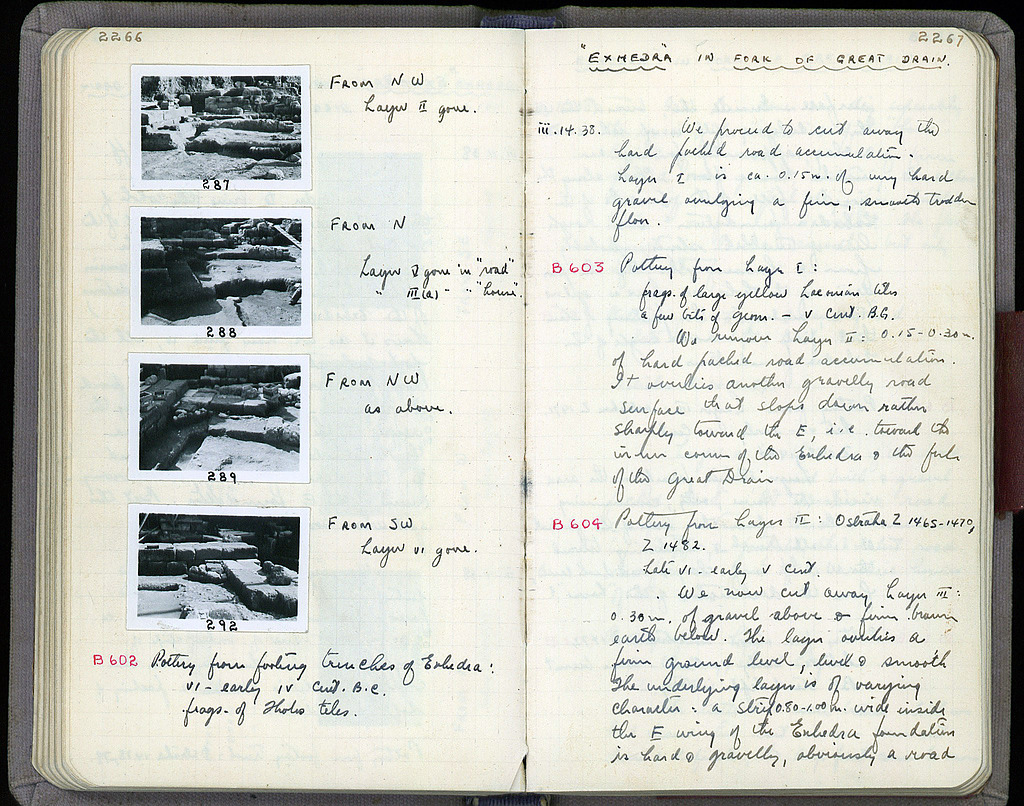 2266
FROM NW
Layer II gone.
287
FROM N
Layer V gone in "road"
" III(a) " " "house".
288
FROM NW
as above.
289
FROM SW
Layer VI gone.
292
B 602 Pottery from footing trenches of Exhedra:
VI - early IV cent. B.C.
frags. of Tholos tiles.
2267
"EXHEDRA" IN FORK OF GREAT DRAIN.
iii.14.38. We proceed to cut away the
hard packed road accumulation.
Layer I is ca. 0.15m. of very hard
gravel overlying a firm, smooth trodden
floor.
B 603 Pottery from Layer I:
frags. of large yellow Laconian tiles
a few bits of geom. - V cent. B.C.
We remove Layer II: 0.15-0.30m.
of hard packed road accumulation.
It overlies another gravelly road
surface that slops down rather
sharply toward the E, i.e. toward the
inner corner of the Exhedra & the fork
of the Great Drain
B 604 Pottery from Layer II: Ostraka Z 1465-1470,
Z 1482.
Late VI early V cent.
We now cut away Layer III:
0.30m. of gravel above & firm brown
earth below. The layer overlies a
firm ground level, level & smooth
The underlying layer is of varying
character: a strip 0.80-1.00m. wide inside
the E wing of the Exhedra foundation
is hard & gravelly, obviously a road